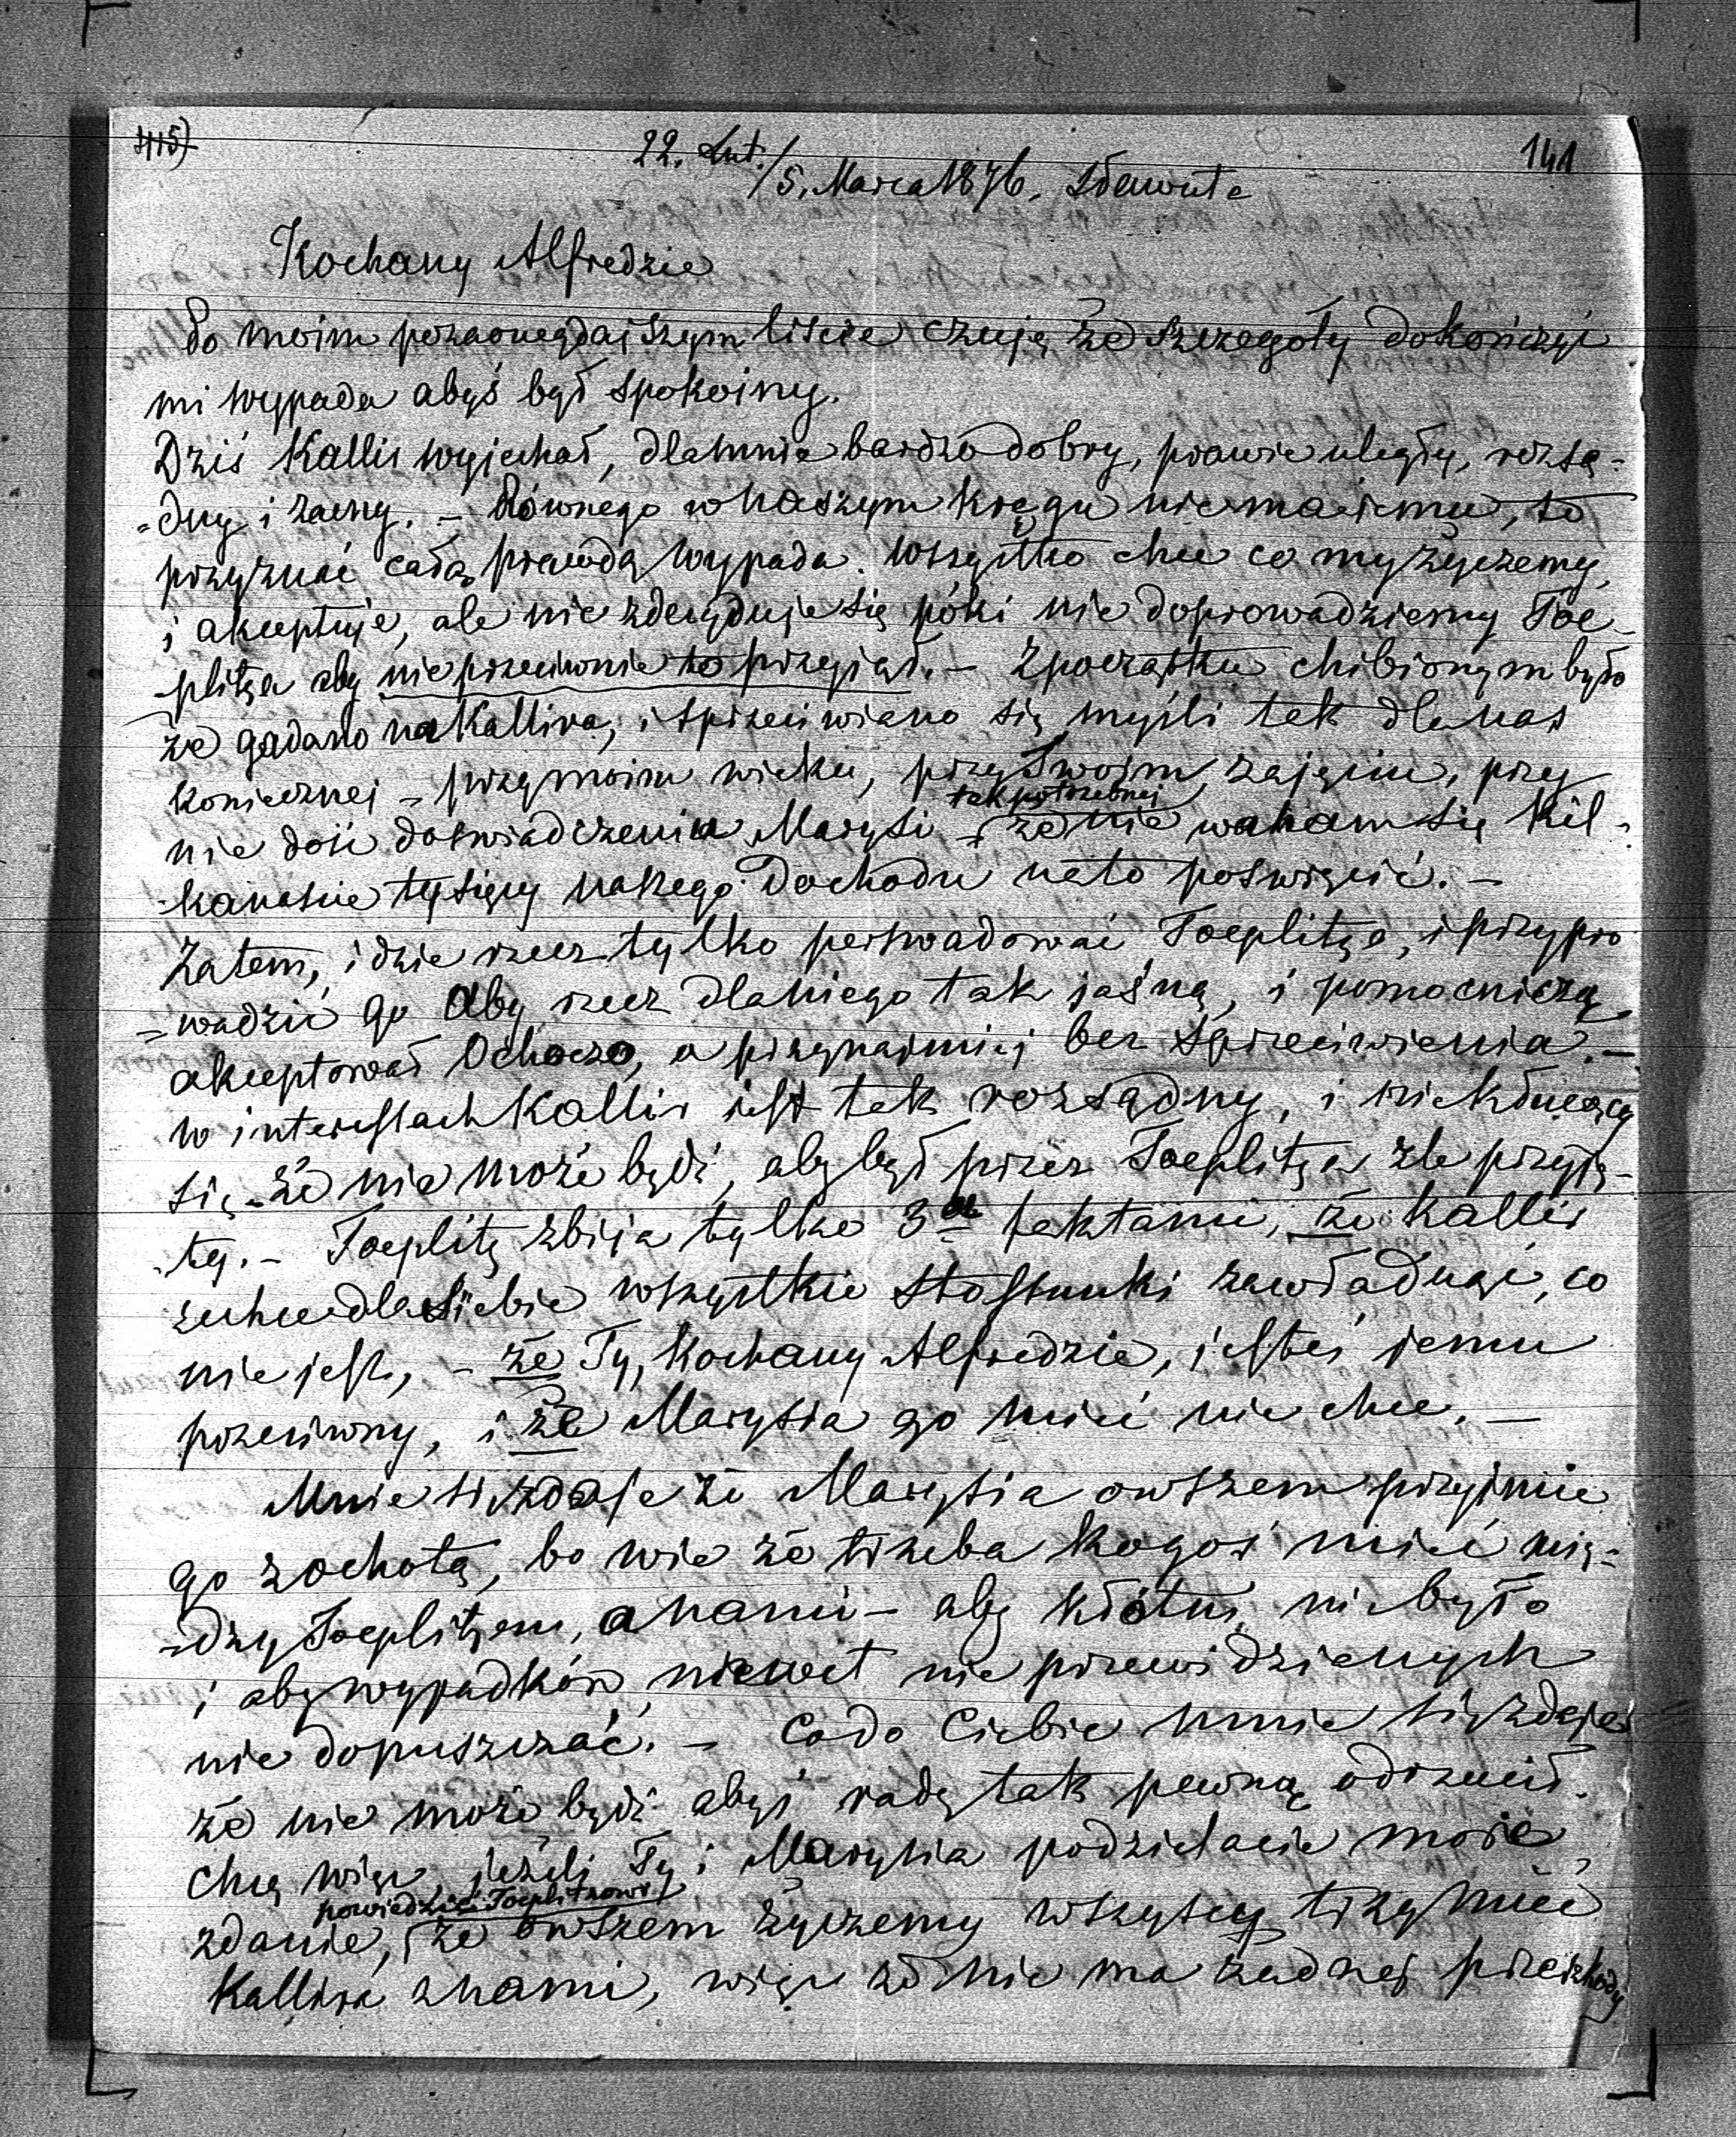 115)
141
22. Lut./5. Marca 1876. Sławuta
Kochany Alfredzie
Po moim pozaonegdajszym liście czuję że szczegóły dokończyć
mi wypada abyś był spokoiny.
Dziś Kallir wyjechał, dla mnie bardzo dobry, prawie uległy, rozsą-
-dny i zacny. – Równego w naszym kręgu nie maiemy, to
przyznać całą prawdą wypada. Wszystko chce co my życzemy,
i akceptuje, ale nie zdecyduje się póki nie doprowadziemy Toe-
-plitza aby nieprzeciwnie to przyiął. – Zpoczątku chibionym było
że gadano na Kallira, i sprzeciwiano się myśli tak dla nas
koniecznej – przy moim wieku, przy Twoim zajęciu, przy
nie dość doświadczenia Marysi – tak potrzebnej że nie waham się kil-
-kanaście tysięcy naszego dochodu na to poświęcić. –
Zatem, idzie rzecz tylko perswadować Toeplitza, i przypro
=wadzić go aby rzecz dla niego tak jaśną, i pomocniczą
akceptował ochoczo, a przynajmniej bez sprzeciwienia. –
w interessach Kallir jest tak rozsądny, i nie kłucący
się – że nie może bydź, aby był przez Toeplitza źle przyję-
-ty. – Toeplitz zbija tylko 3a faktami, że Kallir
zechce dla siebie wszystkie stossunki zawładnąć, co
nie jest, – że Ty, kochany Alfredzie, jesteś jemu
przeciwny, i że Marysia go mieć nie chce. –
Mnie się zdaje że Marysia owszem przyjmie
go z ochotą, bo wie że trzeba kogoś mieć mię-
-dzy Toeplitzem, a nami – aby kłótni niebyło
i aby wypadków nawet nie przewidzianych
nie dopuszczać. – Co do Ciebie mnie się zdaje
że nie może bydź abyś radę tak pewną odrzucił.
chcę więc jeżeli Ty i Marysia podzielacie moie
zdanie, powiedzieć Toeplitzowi że owszem życzemy wszyscy trzy mieć
Kallira z nami, więc że nie ma żadnej przeszkody